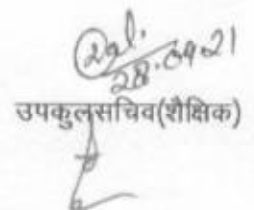 28.09.21
उपकुलसचिव(शैक्षिक)